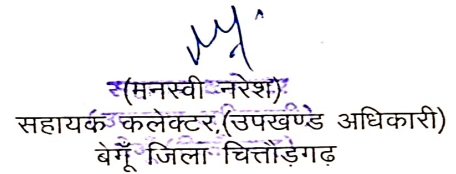 (मनस्वी नरेश)
सहायक कलेक्टर,(उपखण्ड अधिकारी)
बेगूँ जिला चित्तौड़गढ़